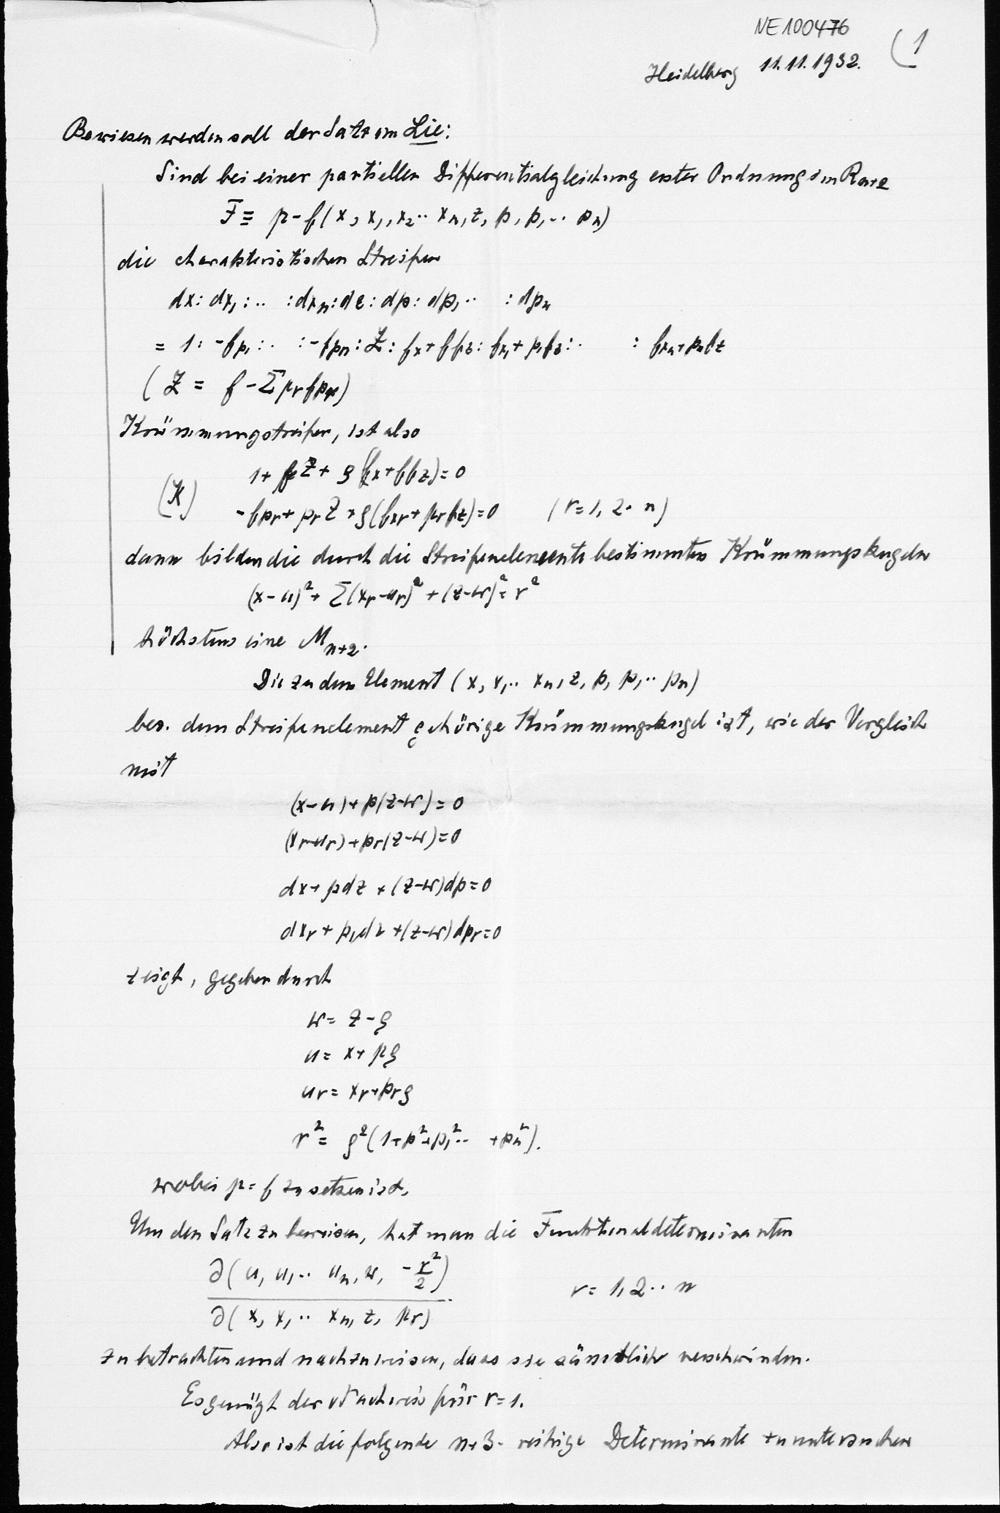 NE100476
(1
Heidelberg 11.11.1932.
Bewiesen werden soll der Satz von Lie:
Sind bei einer partiellen Differentialgleichung erster Ordnungs im Rn+2
F ≡ p-f(x, x₁, x₂·· xₙ, z, p, p₁·· pₙ)
die charakteristischen Streifen
dx: dx₁: ·· :dxₙ:dz: dp: dp₁·· : dpₙ
= 1: -fp₁: ·· :-fpₙ: Z: fx+ffz: fx₁+p₁fz: ·· : fxₙ+pₙfz
(Z = f-Σpᵣfpᵣ)
Krümmungsstreifen, ist also
1+ fZ + ϱ(fx+ffz)=0
(K)
-fpᵣ+ pᵣZ +ϱ(fxᵣ+pᵣfz)=0 (r=1, 2·· n)
dann bilden die durch die Streifenelemente bestimmten Krümmungskugeln
(x-u)²+ Σ(xᵣ-uᵣ)² +(z-w)²= r²
höchstens eine Mₙ₊₂.
Die zu dem Element (x, x₁·· xₙ, z, p, p₁·· pₙ)
bez. dem Streifenelement gehörige Krümmungskugel ist, wie der Vergleich
mit
(x-u)+p(z-w)=0
(xᵣ-uᵣ)+pᵣ(z-w)=0
dx+pdz +(z-w)dp=0
dxᵣ+pᵣdz +(z-w)dpᵣ=0
zeigt, gegeben durch
w= z-ϱ
u= x+pϱ
uᵣ= xᵣ+pᵣϱ
r²= ϱ²(1+p²+p₁²·· +pₙ²).
wobei p=f zu setzen ist.
Um den Satz zu beweisen, hat man die Funktionaldeterminanten
∂(u, u₁·· uₙ, w, -r²/2)
r= 1, 2·· n
∂(x, x₁·· xₙ, z, pᵣ)
zu betrachten und nachzuweisen, dass sie sämtlich verschwinden.
Es genügt der Nachweis für r=1.
Also ist die folgende n+3-reihige Determinante zu untersuchen